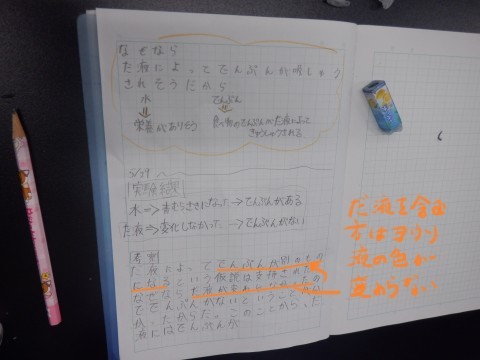 なぜなら
だ液によってでんぷんが吸しゅう
されそうだから
水 でんぷん
栄養がありそう 食べ物のでんぷんがだ液によって
きゅうしゅうされる
5/29
実験結果
水⇒青むらさきになった→でんぷんがある
だ液⇒変化しなかった→でんぷんがない
考察
だ液によってでんぷんが別のもの
になるという仮説は支持された
なぜなら
でんぷんがないということが
かったからだ。このことから、だ
液にはでんぷんが
だ液を含む
方はヨウソ
液の色が
変わらない